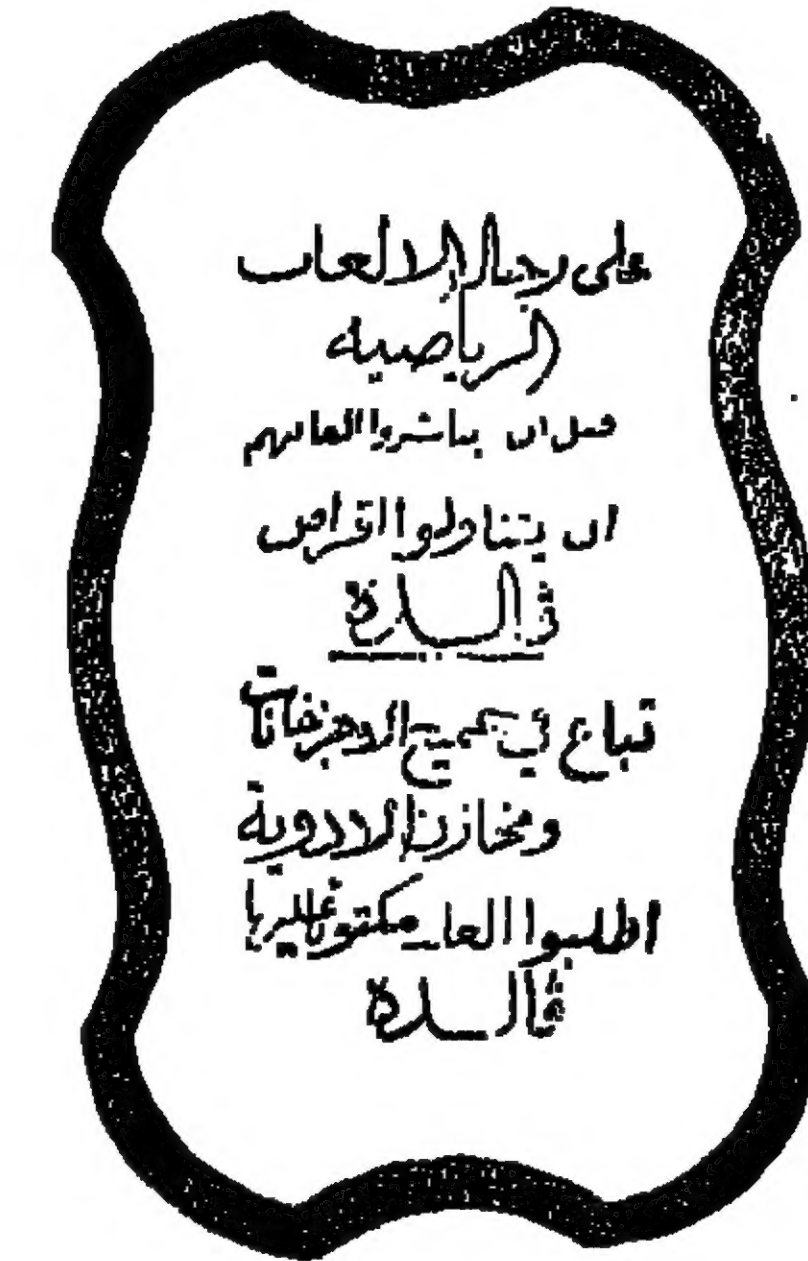 على رجال الالعاب
الرياضيه
قبل ان يباشروا العابهم
ان يتناولوا اقراص
ڤالسدرة
تباع في جميع الاجزخانات
ومخازن الادوية
اطلبوا العلب مكتوبا عليها
ڤالسدة